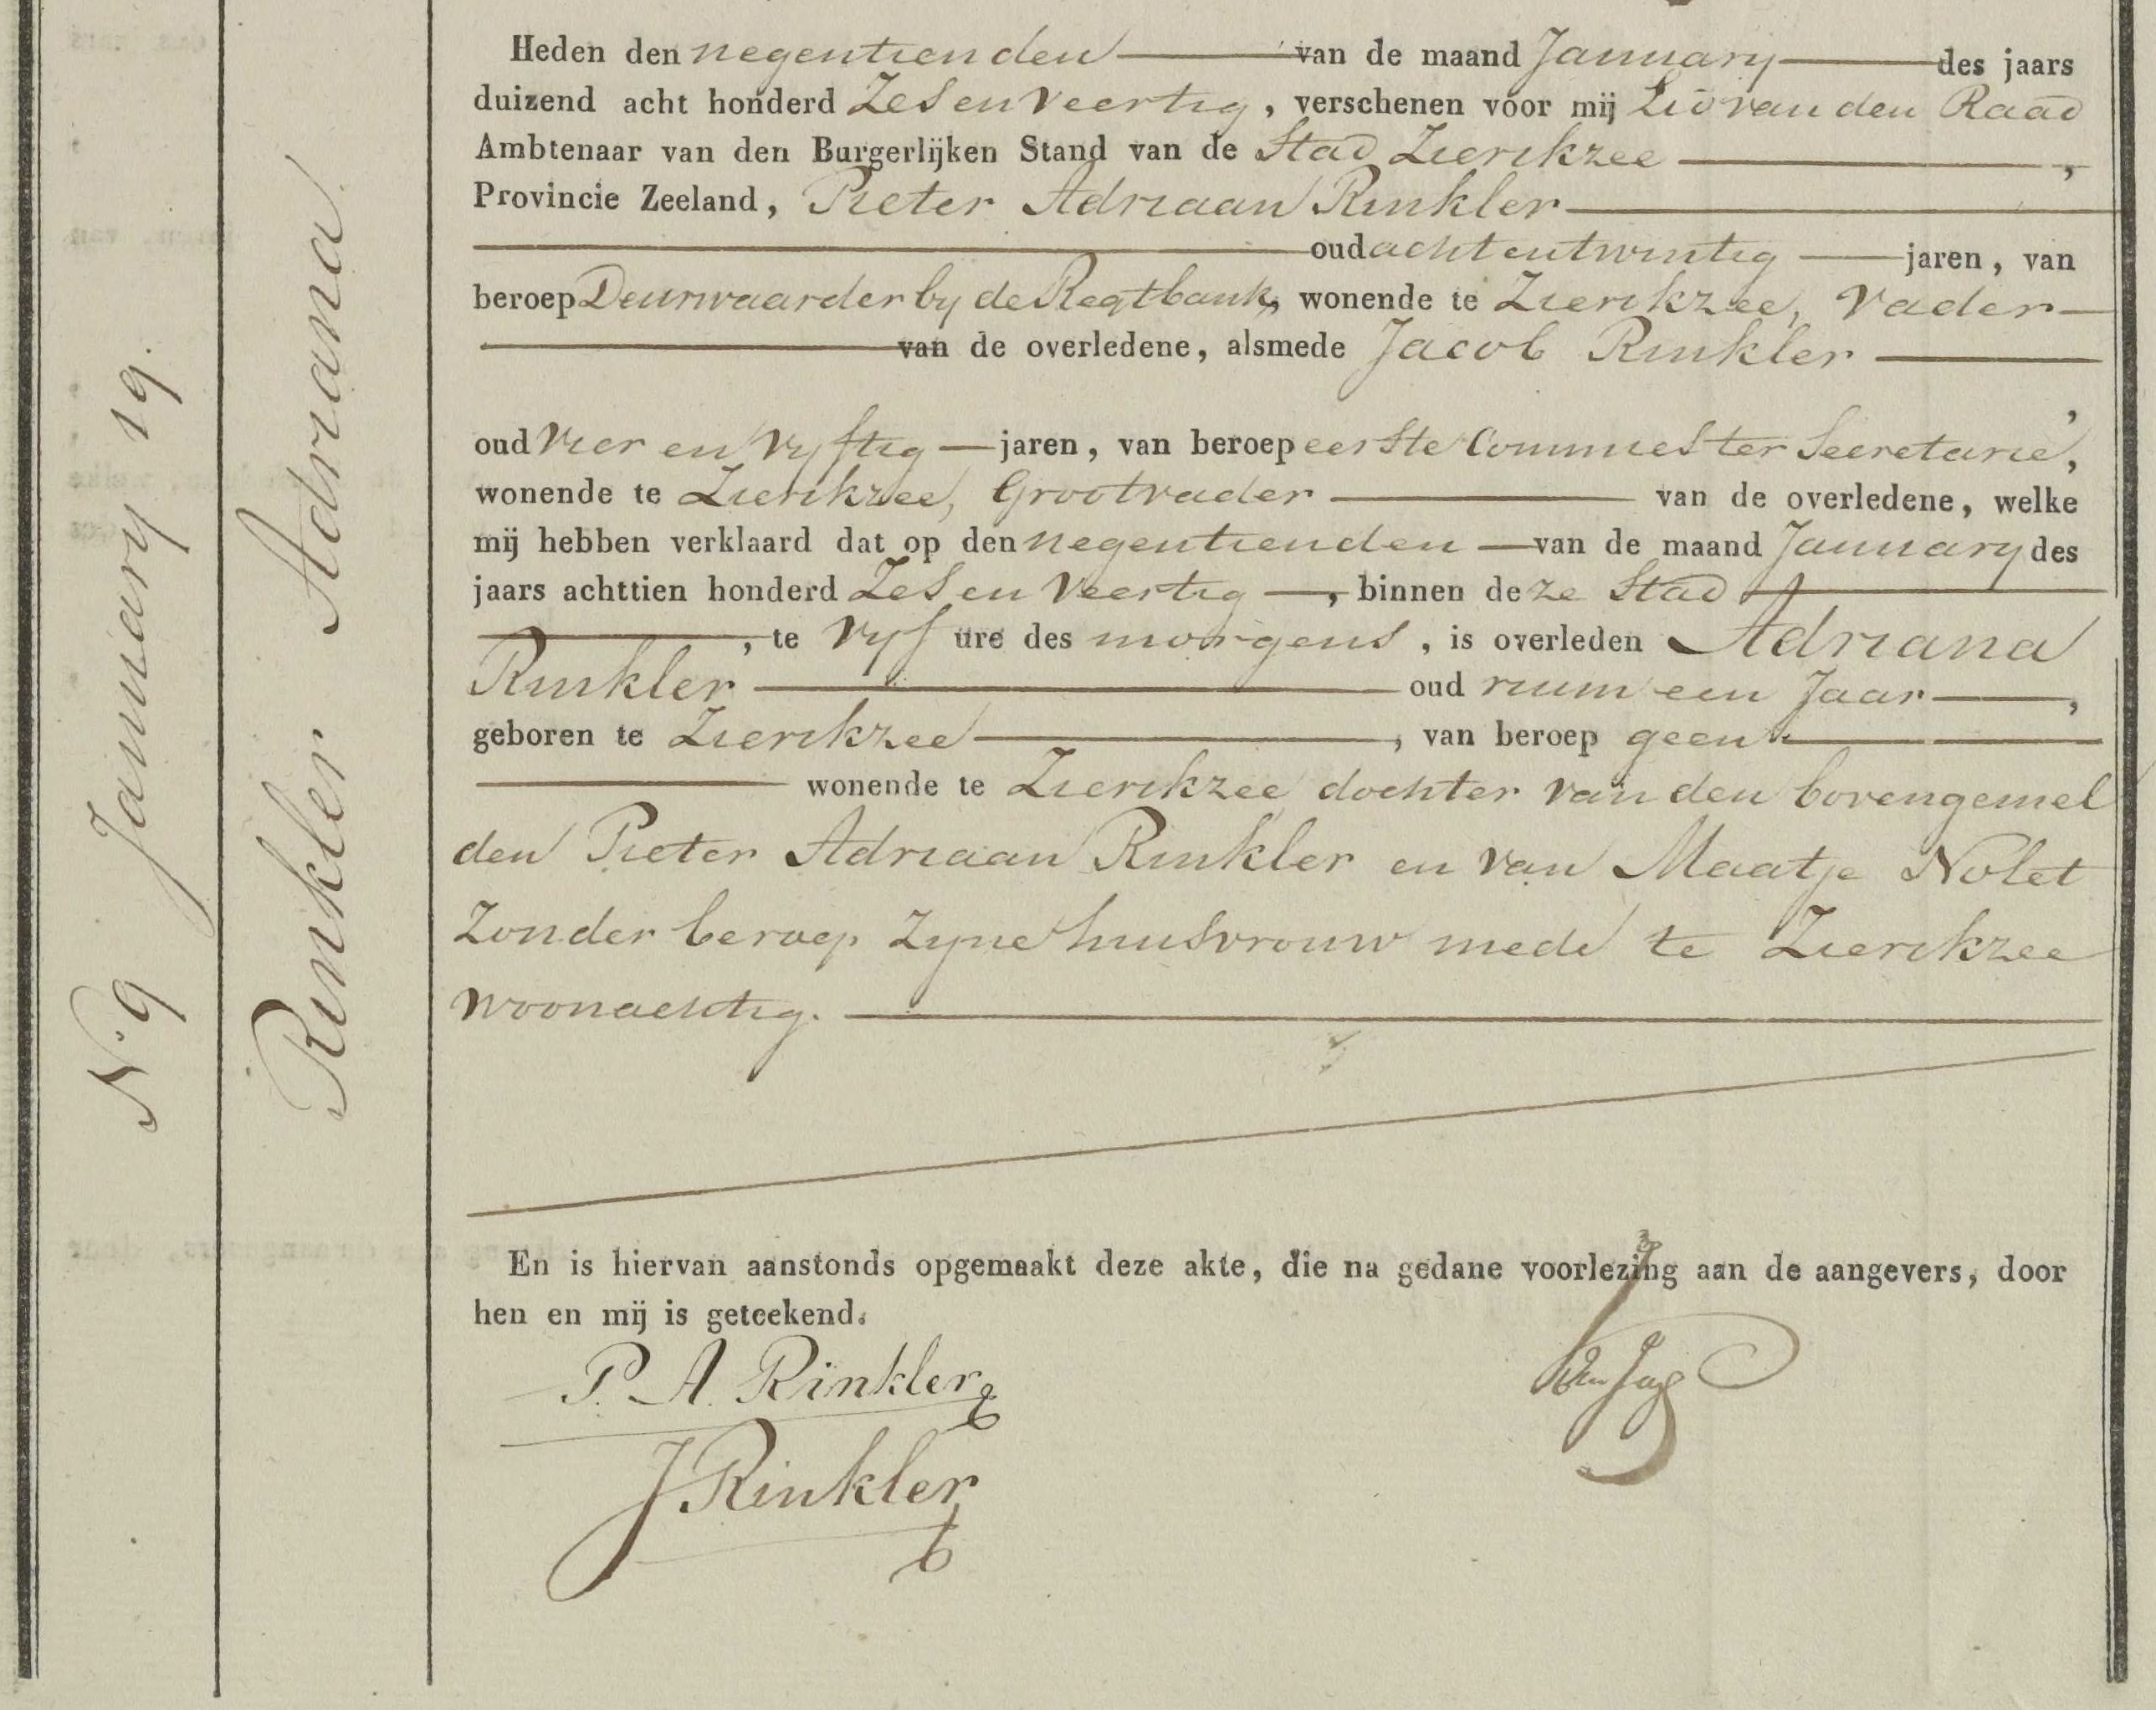 N. 9 January 19.
Rinkler Adriana.
Heden den negentienden van de maand January des jaars
duizend acht honderd Zes en veertig, verschenen voor mij Lid van den Raad
Ambtenaar van den Burgerlijken Stand van de Stad Zierikzee,
Provincie Zeeland, Pieter Adriaan Rinkler
oud achtentwintig jaren, van
beroep Deurwaarder by de Regtbank, wonende te Zierikzee, Vader
van de overledene, alsmede Jacob Rinkler
,
oud vier en vyftig jaren, van beroep eerste Commies ter Secretarie,
wonende te Zierikzee, Grootvader van de overledene, welke
mij hebben verklaard dat op den negentienden van de maand January des
jaars achttien honderd Zes en veertig, binnen deze Stad
, te vyf ure des morgens, is overleden Adriana
Rinkler oud ruim een Jaar,
geboren te Zierikzee, van beroep geen
wonende te Zierikzee dochter van den bovengemel
den Pieter Adriaan Rinkler en van Maatje Nolet
Zonder beroep Zyne huisvrouw mede te Zierikzee
woonachtig.
En is hiervan aanstonds opgemaakt deze akte, die na gedane voorlezing aan de aangevers, door
hen en mij is geteekend.
P. A. Rinkler
J Rinkler